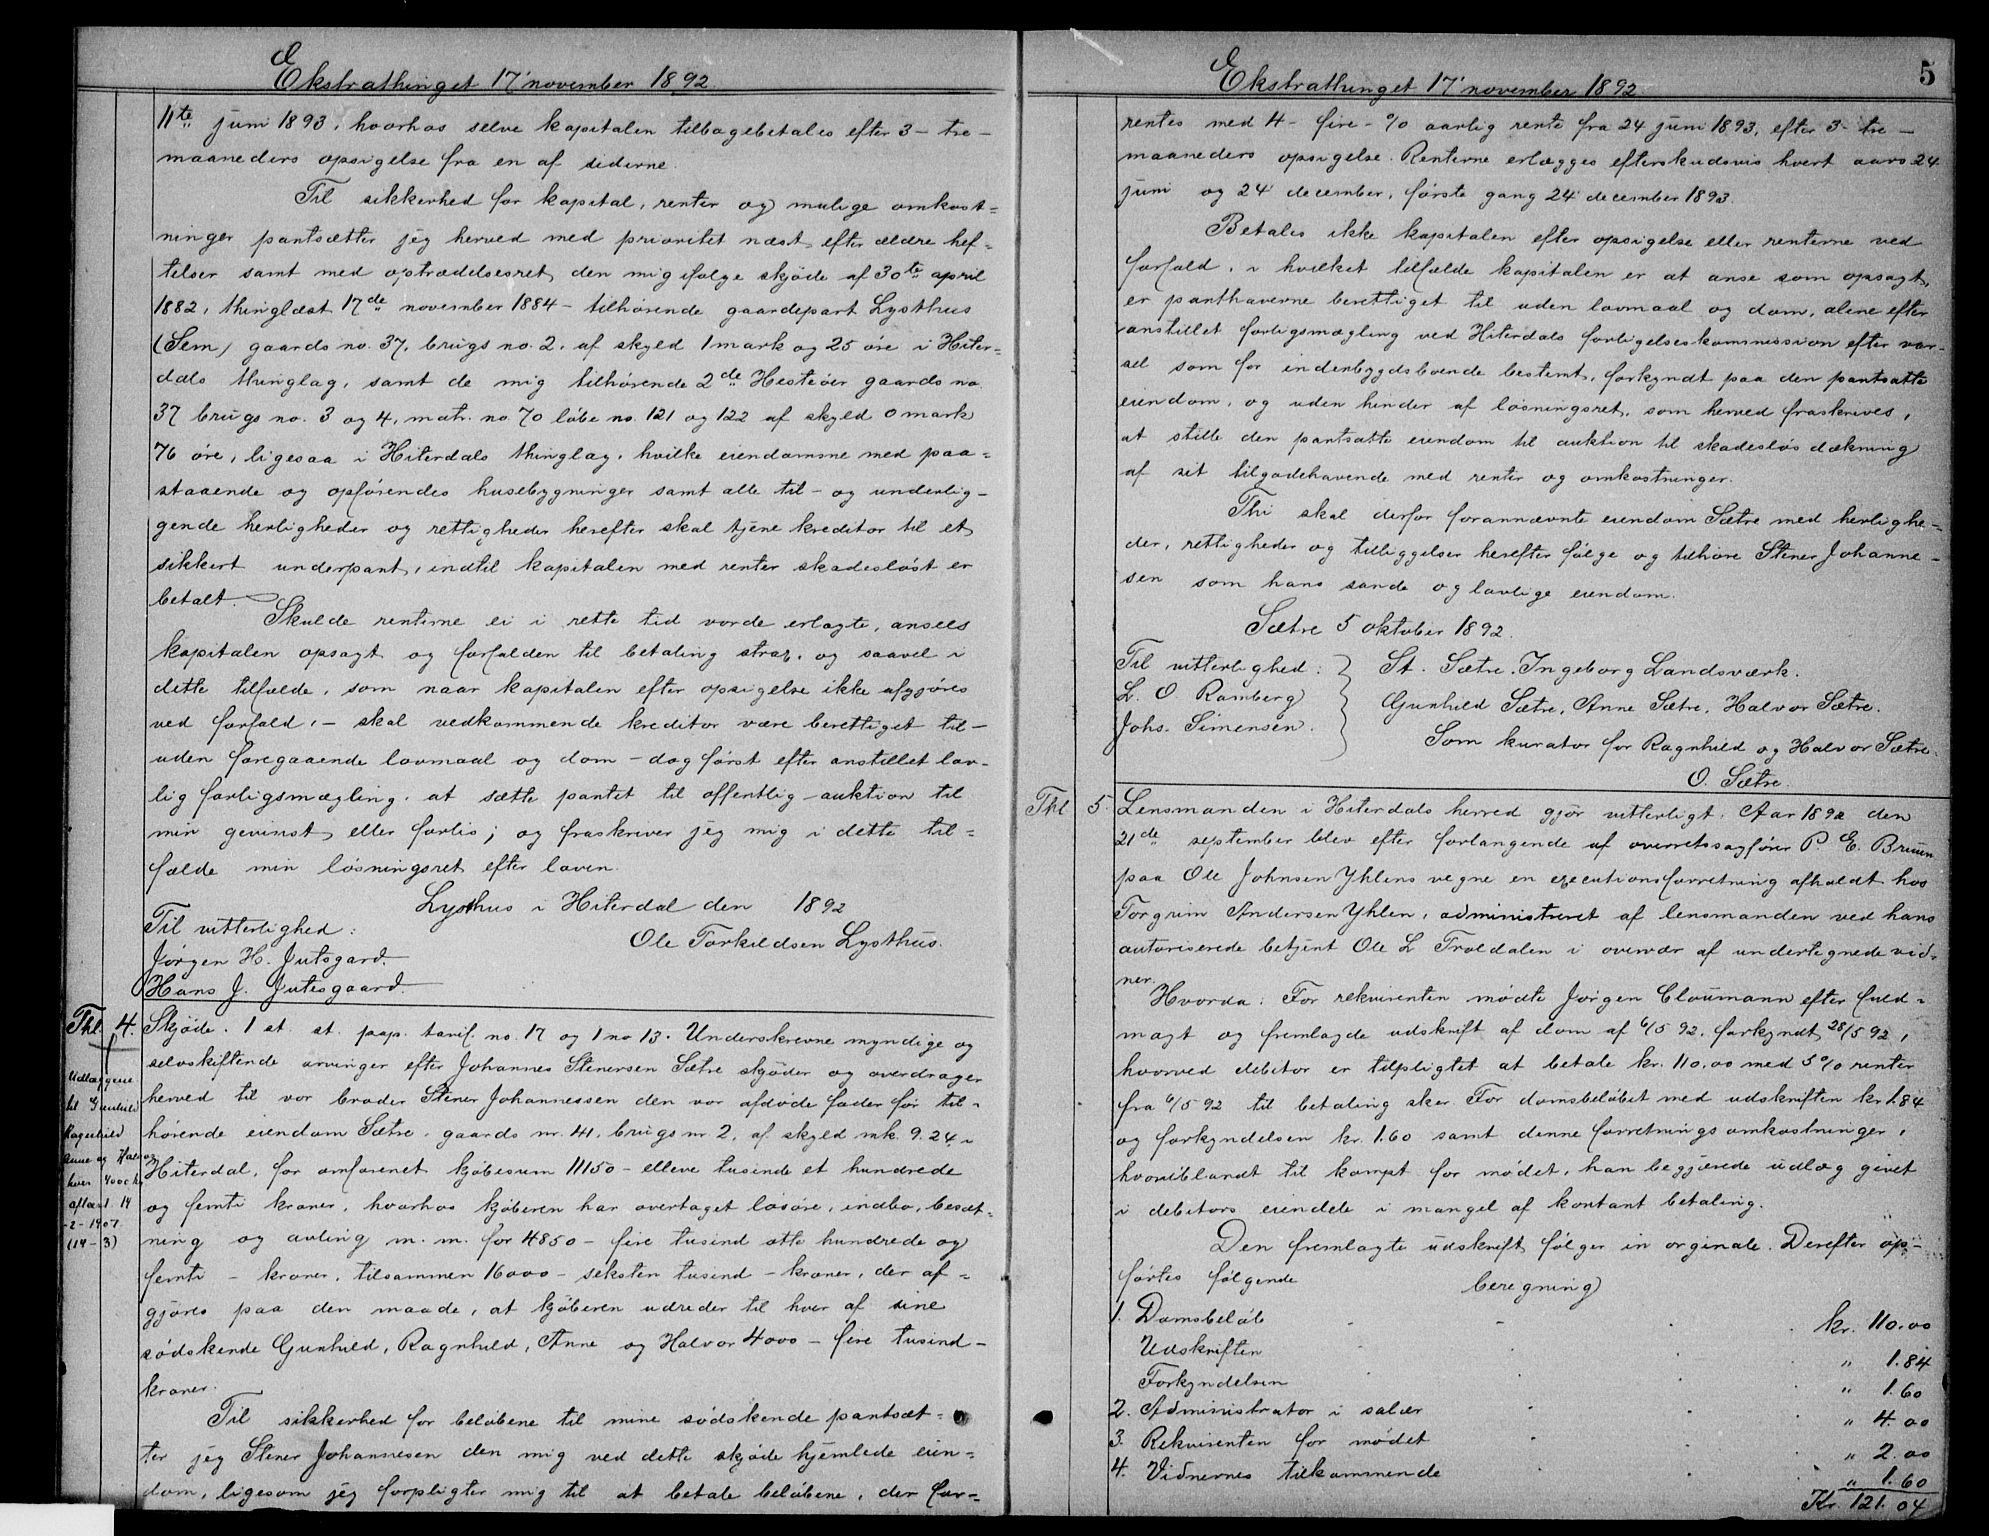 Ekstrathinget 17' november 1892.
11te juni 1893, hvorhos selve kapitalen tilbagebetales efter 3 - tre -
maaneders opsigelse fra en af siderne.
Til sikkerhed for kapital, renter og mulige omkost=
ninger pantsætter jeg herved med prioritet næst efter ældre hef=
telser samt med optrædelsesret den mig ifølge skjøde af 30te april
1882, thinglæst 17de november 1884 - tilhørende gaardepart Lysthus
(Sem) gaards no. 37, brugs no. 2. af skyld 1 mark og 25 øre i Hiter=
dals thinglag, samt de mig tilhørende 2de Hesteøer gaards no.
37 brugs no. 3 og 4, matr. no 70 løbe no. 121 og 122 af skyld 0 mark
76 øre, ligesaa i Hiterdals thinglag, hvilke eiendomme med paa=
staaende og opførendes husebygninger samt alle til- og underlig-
gende herligheder og rettigheder herefter skal tjene kreditor til et
sikkert underpant, indtil kapitalen med renter skadesløst er
betalt.
Skulde renterne ei i rette tid vorde erlagte, ansees
kapitalen opsagt og forfalden til betaling strax, og saavel i
dette tilfælde, som naar kapitalen efter opsigelse ikke afgjøres
ved forfald, - skal vedkommende kreditor være berettiget til -
uden foregaaende lovmaal og dom - dog først efter anstillet lov-
lig forligsmægling, at sætte pantet til offentlig auktion til
min gevinst eller forlis; og fraskriver jeg mig i dette til=
fælde min løsningsret efter loven.
Lysthus i Hiterdal den 1892
Til vitterlighed: Ole Torkildsen Lysthus.
Jørgen H. Jutsgard.
Hans J. Jutesgaard.
Thl. 4. Skjøde. 1 st. st. pap. tarif. no. 17 og 1 no 13. Underskrevne myndige og
selvskiftende arvinger efter Johannes Stenersen Sætre skjøder og overdrager
herved til vor broder Stener Johannessen den vor afdøde fader før til=
hørende eiendom Sætre, gaards nr. 41, brugs nr 2, af skyld mk. 9.24 i
Hiterdal, for omforenet kjøbesum 11150 - elleve tusinde et hundrede
og femti kroner, hvorhos kjøberen har overtaget løsøre, indbo, besæt=
ning og avling m. m. for 4850 - fire tusind otte hundrede og
femti - kroner, tilsammen 16000 - seksten tusind - kroner, der af=
gjøres paa den maade, at kjøberen udreder til hver af sine
sødskende Gunhild, Ragnhild, Anne og Halvor 4000 - fire tusind -
kroner.
Til sikkerhed for beløbene til mine sødskende pantsæt=
ter jeg Stener Johannesen den mig ved dette skjøde hjemlede eien=
dom, ligesom jeg forpligter mig til at betale beløbene, der for=
Udlæggene
til Gunhild
Ragnhild
Anne og Halvor
hver 4000 kr
aflæst 14
-2-1907.
(14-3)
Ekstrathinget 17' november 1892
5
rentes med 4 - fire - % aarlig rente fra 24 juni 1893, efter 3 - tre -
maaneders opsigelse. Renterne erlægges efterskudsvis hvert aars 24
juni og 24' december, første gang 24' december 1893.
Betales ikke kapitalen efter opsigelse eller renterne ved
forfald, i hvilket tilfælde kapitalen er at anse som opsagt,
er panthaverne berettiget til uden lovmaal og dom, alene efter
anstillet forligsmægling ved Hiterdals forligelseskommission efter var-
sel som for indenbygdsboende bestemt, forkyndt paa den pantsatte
eiendom, og uden hinder af løsningsret, som herved fraskrives,
at stille den pantsatte eiendom til auktion til skadesløs dækning
af sit tilgodehavende med renter og omkostninger.
Thi skal derfor forannævnte eiendom Sætre med herlighe=
der, rettigheder og tilliggelser herefter følge og tilhøre Stener Johanne-
sen som hans sande og lovlige eiendom.
Sætre 5 oktober 1892.
Til vitterlighed: St. Sætre. Ingeborg Landsværk.
L. O. Ramberg Gunhild Sætre, Anne Sætre, Halvor Sætre.
Johs. Simensen. Som kurator for Ragnhild og Halvor Sætre.
O. Sætre.
Thl 5. Lensmanden i Hiterdals herred gjør vitterligt. Aar 1892 den
21de september blev efter forlangende af overretssagfører P. E. Bruun
paa Ole Johnsen Yhlens vegne en executionsforretning afholdt hos
Torgrim Andersen Yhlen, administreret af lensmanden ved hans
autoriserede betjent Ole L Troldalen i overvær af undertegnede vid=
ner.
Hvorda: For rekvirenten mødte Jørgen Cloumann efter fuld=
magt og fremlagde udskrift af dom af 6/5 92, forkyndt 28/5 92,
hvorved debitor er tilpligtet at betale kr. 110.00 med 5% renter
fra 6/5 92 til betaling sker. For domsbeløbet med udskriften kr 1.84
og forkyndelsen kr. 1.60 samt denne forretnings omkostninger,
hvoriblandt til kompt for mødet, han begjærede udlæg givet
i debitors eiendele i mangel af kontant betaling.
Den fremlagte udskrift følger in orginale. Derefter op-
førtes følgende beregning
1. Domsbeløb kr. 110.00
Udskriften " 1.84
Forkyndelsen " 1.60
2. Administrator i salær " 4.00
3. Rekvirenten for mødet " 2.00
4. Vidnernes tilkommende " 1.60
Kr. 121.04